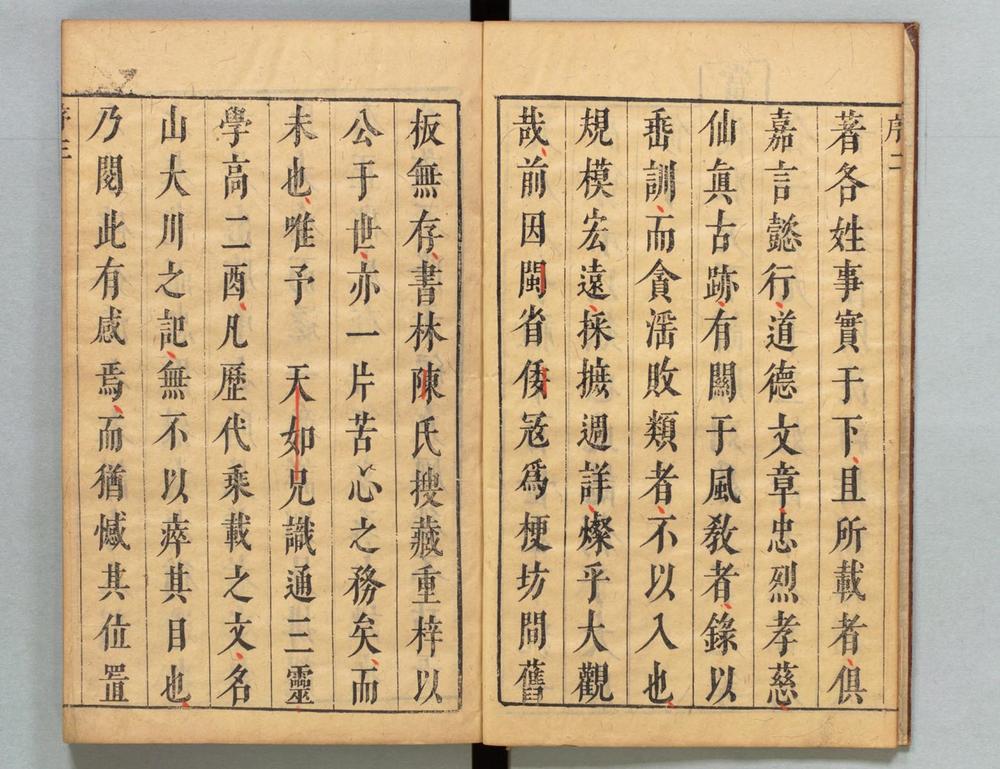 序二
著各姓事實于下且所載者俱
嘉言懿行道德文章忠烈孝慈
仙眞古跡有關于風敎者錄以
垂訓而貪淫敗類者不以入也
規模宏遠採摭週詳燦乎大觀
哉前因閩省倭寇爲梗坊間舊
板無存書林陳氏搜藏重梓以
公于世亦一片苦心之務矣而
未也唯予 天如兄識通三靈
學高二酉凡歷代乘載之文名
山大川之記無不以瘁其目也
乃閱此有感焉而猶憾其位置
序三